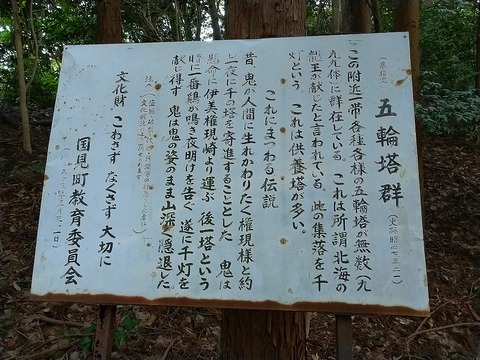 五輪塔群
この附近一帯各種各様の五輪塔が無数(九
九九体)に群在している。これは所謂北海の
龍王が献じたと言われている。此の集落を千
灯という。これは供養塔が多い。
これにまつわる伝説
昔、鬼が人間に生れかわりたく権現様と約
し一夜に千の塔を寄進することとした 鬼は
伊美権現崎より運ぶ 後一塔という
時に一番鶏が鳴き夜明けを告ぐ 遂に千灯を
献じ得ず 鬼は鬼の姿のまま山深く隠退した。
文化財 こわさず なくさず 大切に
国見町教育委員会